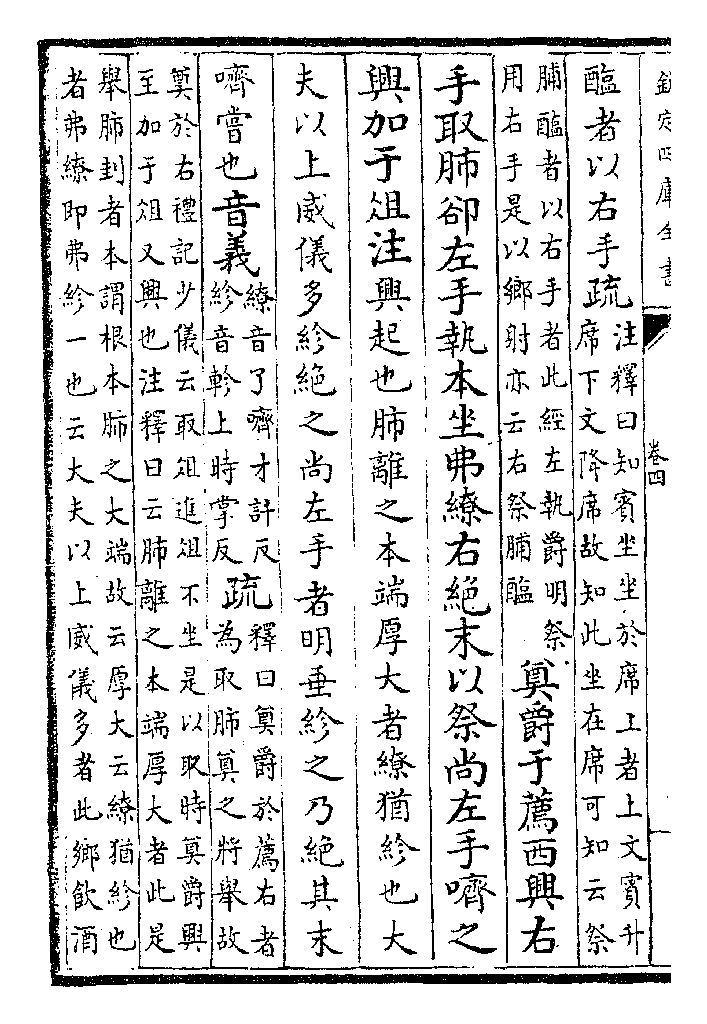 欽定四庫全書
卷四
醢者以右手疏注釋曰知賓坐坐於席上者上文賓升
席下文降席故知此坐在席可知云祭
脯醢者以右手者此經左執爵明祭
用右手是以鄉射亦云右祭脯醢
奠爵于薦西興右
手取肺卻左手執本坐弗繚右絕末以祭尚左手嚌之
興加于俎注興起也肺離之本端厚大者繚猶紾也大
夫以上威儀多紾絕之尚左手者明垂紾之乃絕其末
嚌嘗也音義繚音了嚌才計反
紾音軫上時掌反
疏釋曰奠爵於薦右者
為取肺奠之將舉故
奠於右禮記少儀云取俎進俎不坐是以取時奠爵興
至加于俎又興也注釋曰云肺離之本端厚大者此是
舉肺刲者本謂根本肺之大端故云厚大云繚猶紾也
者弗繚即弗紾一也云大夫以上威儀多者此鄉飲酒